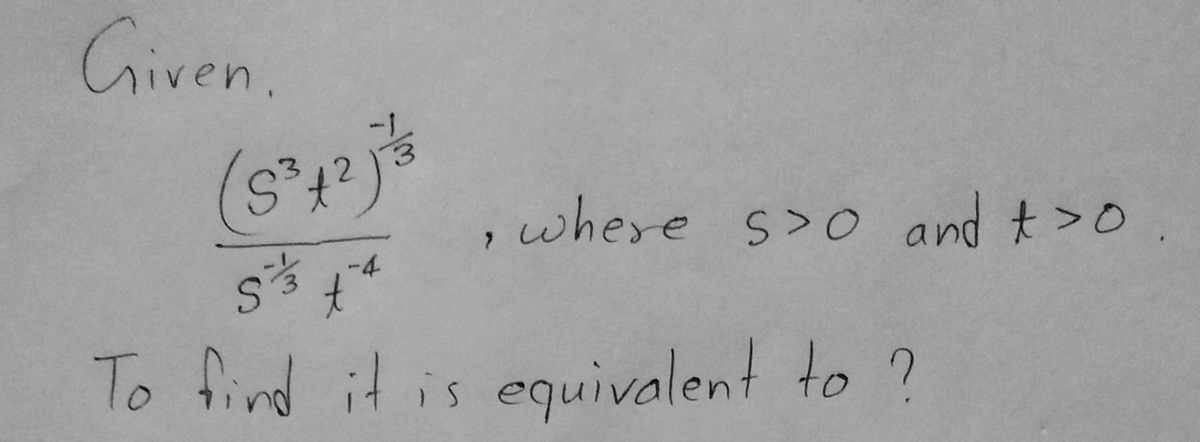 Given,
(s³t²)^(-1/3)
/
s^(-1/3) t^(-4)
, where s>0 and t>0.
To find it is equivalent to ?